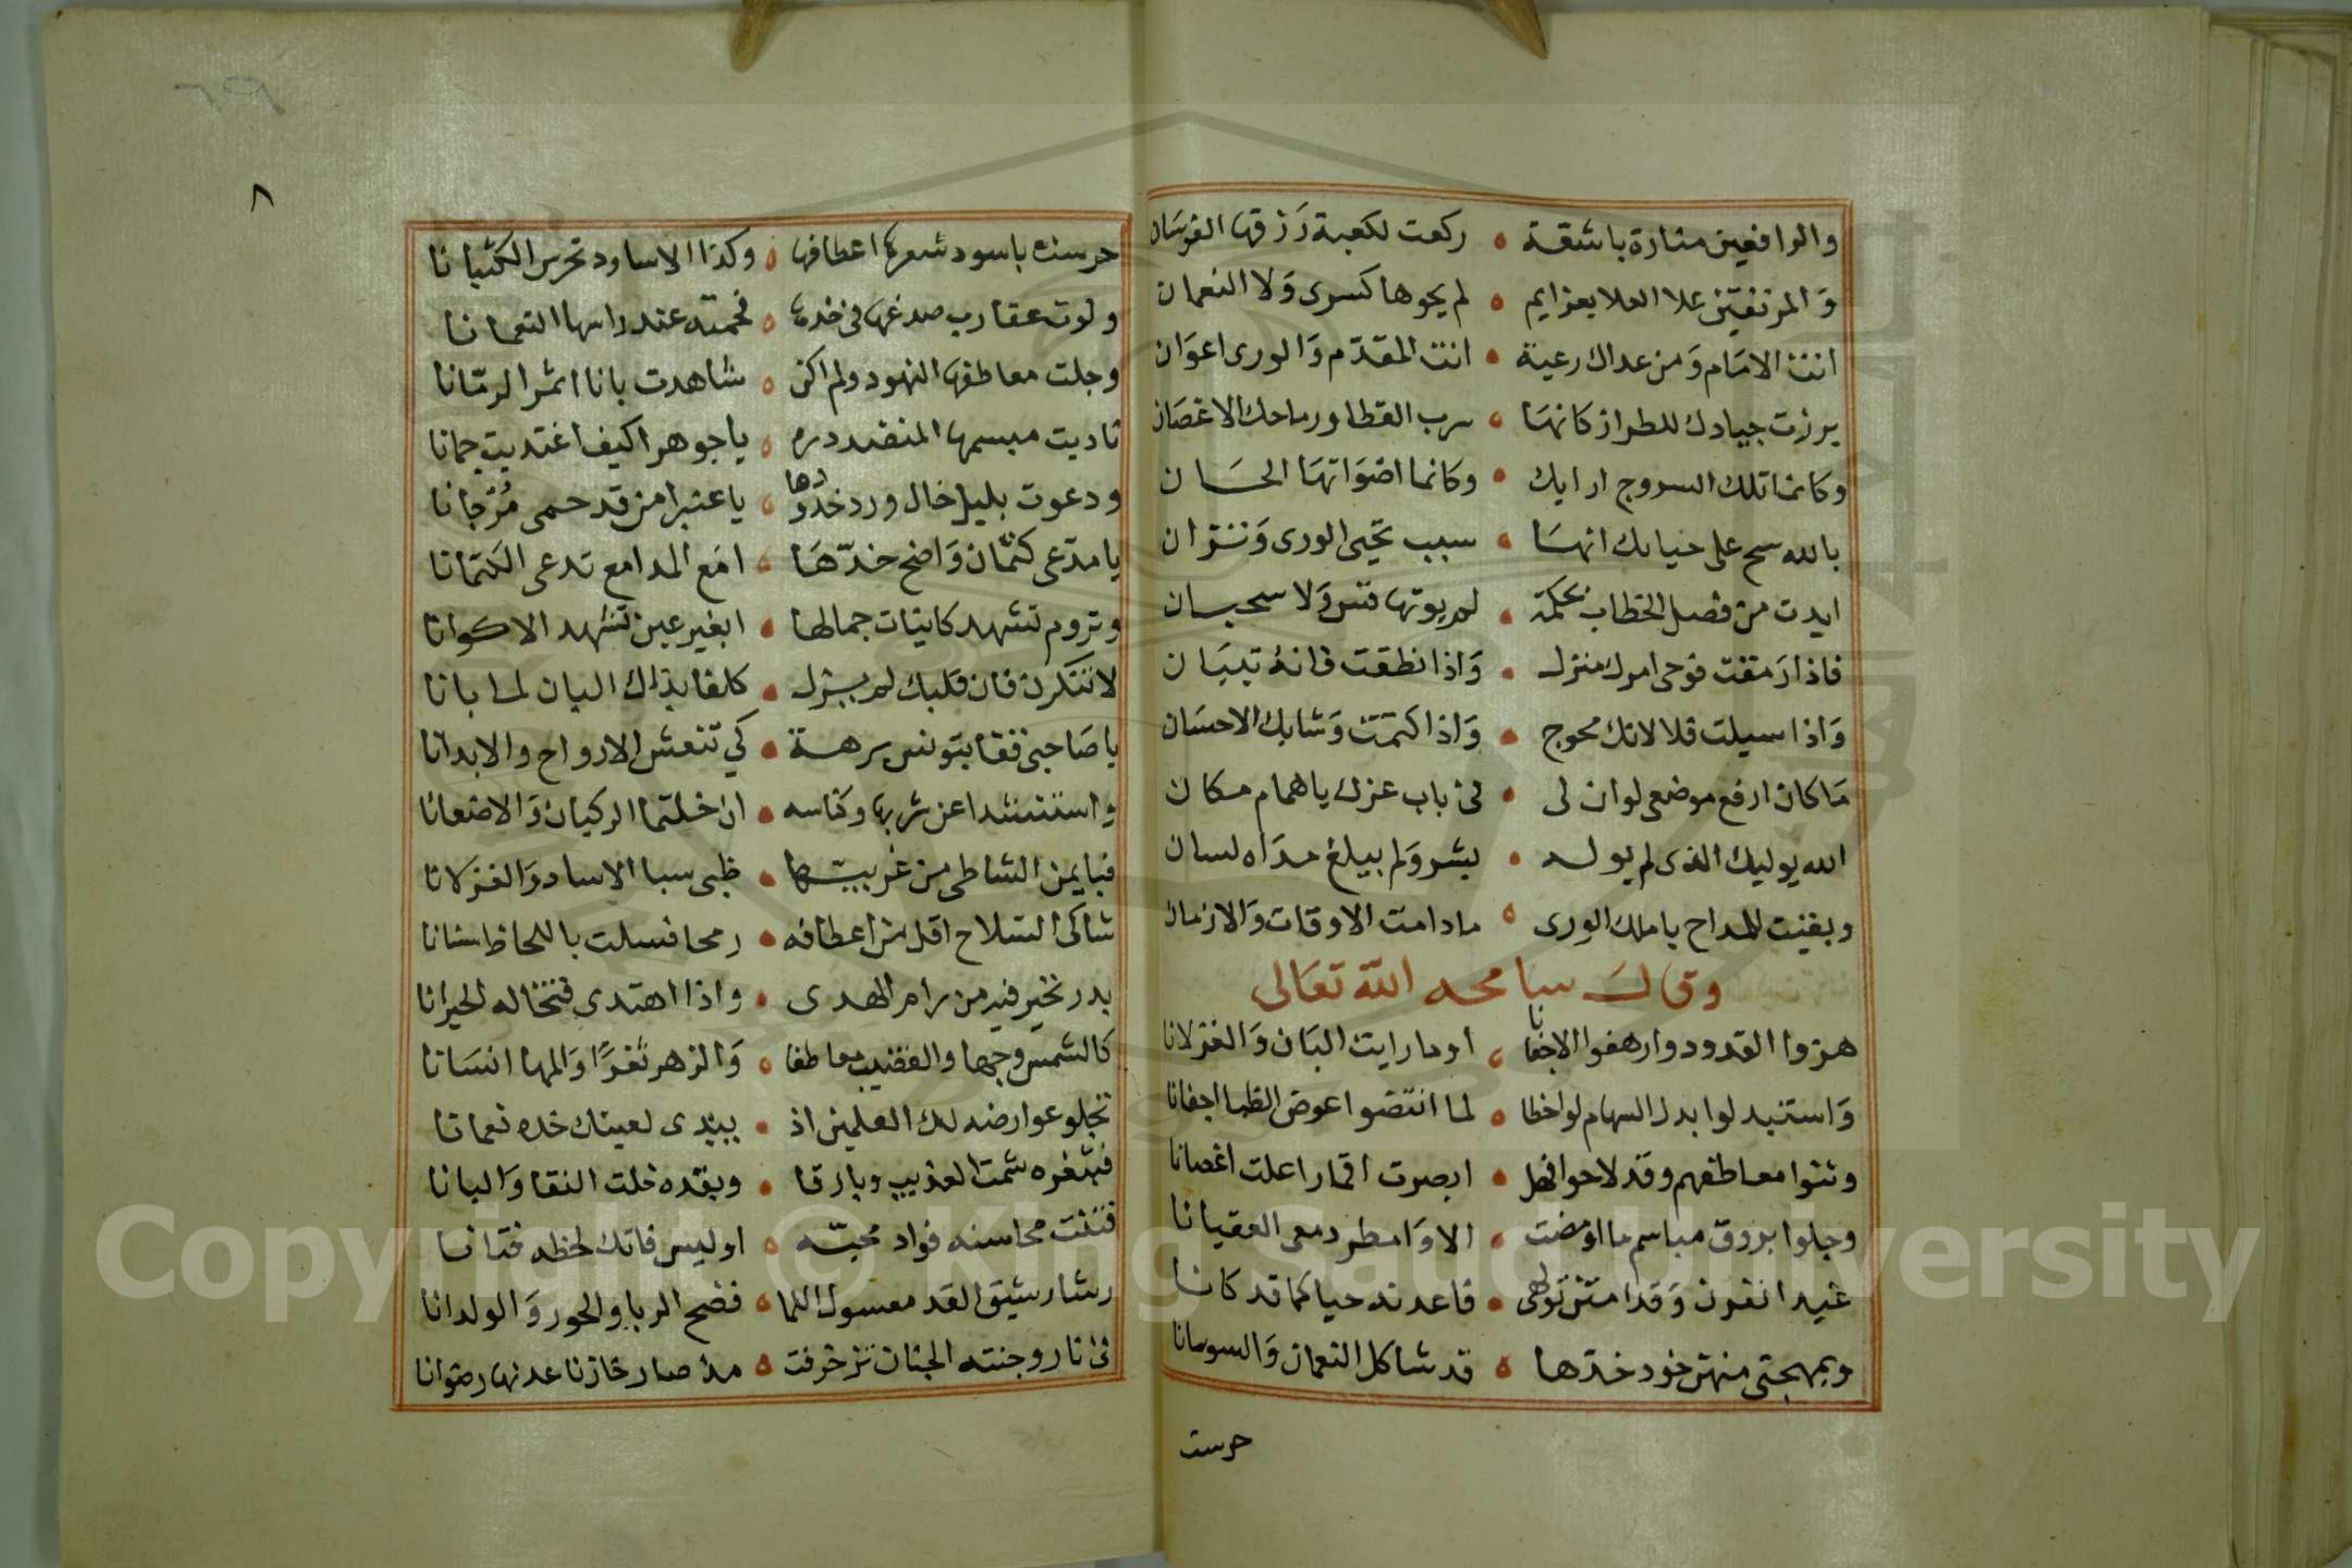 والرافعين منارة باشقة • ركعت لكعبة رزقها الفرسان
والمرتقين علا العلا بعزايم • لم يحوها كسرى ولا النعمان
انت الامام ومن عداك رعية • انت المقدم والورى اعوان
برزت جيادك للطراز كانها • سرب القطا ورماحك الاغصان
وكانما تلك السروج ارايك • وكانما اضواتها الحسان
بالله سح على حيابك انها • سبب تحيى الورى وتزان
ايدت من فصل الخطاب بحكمة • لم يوتها قس ولا سحبان
فاذا رمقت فوحى امرك منزل • واذا نطقت فانه تبيان
واذا سيلت فلا لانك محوج • واذا كتمت وشابك الاحسان
ما كان ارفع موضعى لو ان لى • فى باب عزك يا همام مكان
الله يوليك الذى لم يوله • بشر ولم يبلغ مداه لسان
وبقيت للمداح يا ملك الورى • ما دامت الاوقات والازمان
وقال سامحه الله تعالى
هزوا القدود وارهفوا الاجفانا • اوما رايت البان والغزلانا
واستبدلوا بدل السهام لواحظا • لما انتضوا عوض الظبا اجفانا
وثنوا معاطفهم وقد لاحوا فهل • ابصرت اقمارا علت اغصانا
وجلوا بروق مباسم ما اومضت • الا وامطر دمعى العقيانا
غيد انفرن وقد امتن تولهى • فاعدنه حيا كما قد كانا
وبمهجتى منهن خود خدها • قد شاكل النعمان والسوسانا
حرست
٨
حرست باسود شعرها اعطافها • وكذا الاساود تحرس الكثبانا
ولوت عقارب صدغها فى خدها • فحمته عند راسها النعمانا
وجلت معاطفها النهود ولم اكن • شاهدت بانا اثمر الرمانا
ناديت مبسمها المنضد دره • يا جوهرا كيف اغتديت جمانا
ودعوت بليل خال ورد خدودها • يا عنبرا من قد حمى مرجانا
يا مدعى كتمان واضح خدها • امع المدامع تدعى الكتمانا
وتروم تشهد كاينات جمالها • ابغير عين تشهد الاكوانا
لا تنكرن فان قلبك لم يزل • كلفا بذاك البان لما بانا
يا صاحبى قفا بتونس برهة • كى تنعش الارواح والابدانا
واستنشدا عن شربها وكناسه • ان خلتما الركبان والاضعانا
فبايمن الشاطى من غربيها • ظبى سبا الاساد والغزلانا
شاكى السلاح اقل من اعطافه • رمحا فسلت باللحاظ سنانا
بدر تحير فيه من رام الهدى • واذا اهتدى فتخاله الحيرانا
كالشمس وجها والقضيب معاطفا • والزهر ثغرا والمها انسانا
تجلو عوارضه لك العلمين اذ • يبدى لعينك خده نعمانا
فبثغره شمت العذيب وبارقا • وبقده خلت النقا والبانا
فتنت محاسنه فواد محبه • اوليس فاتك لحظه فتانا
رشا رشيق القد معسول اللما • فضح الربا والحور والولدانا
فى نار وجنته الجنان تزخرفت • مذ صار خازنا عدنها رضوانا
Copyright © King Saud University